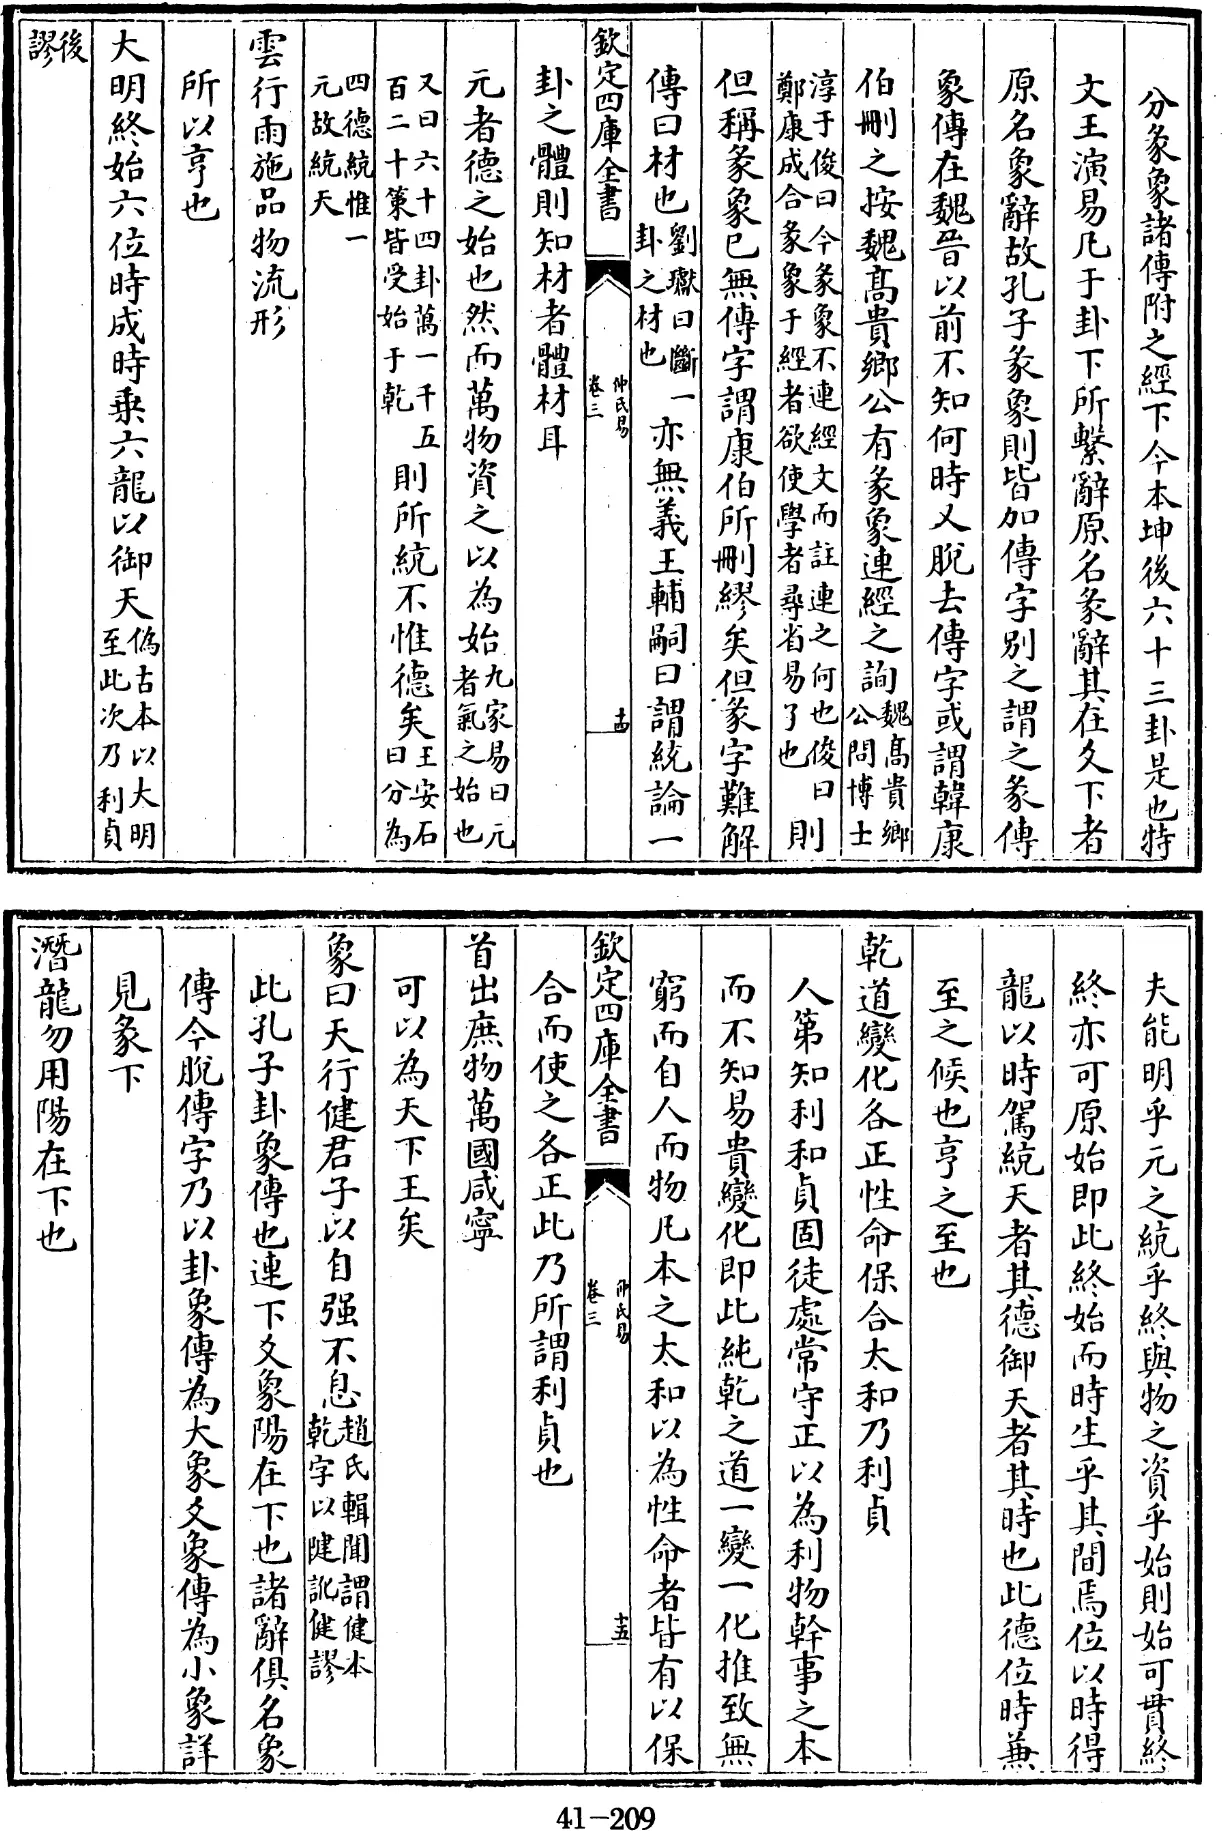 分彖象諸傳附之經下今本坤後六十三卦是也特
文王演易凡于卦下所繫辭原名彖辭其在爻下者
原名象辭故孔子彖象則皆加傳字别之謂之彖傳
象傳在魏晋以前不知何時又脫去傳字或謂韓康
伯刪之按魏髙貴鄉公有彖象連經之詢魏髙貴鄉公問博士
淳于俊曰今彖象不連經文而註連之何也俊曰鄭康成合彖象于經者欲使學者尋省易了也則
但稱彖象已無傳字謂康伯所刪繆矣但彖字難解
傳曰材也劉瓛曰斷卦之材也一亦無義王輔嗣曰謂統論一
欽定四庫全書
仲氏易
卷三
十四
卦之體則知材者體材耳
元者德之始也然而萬物資之以為始九家易曰元者氣之始也
又曰六十四卦萬一千五百二十策皆受始于乾則所統不惟德矣王安石曰分為
四德統惟一元故統天
雲行雨施品物流形
所以亨也
大明終始六位時成時乗六龍以御天偽古本以大明至此次乃利貞
後謬
夫能明乎元之統乎終與物之資乎始則始可貫終
終亦可原始即此終始而時生乎其間焉位以時得
龍以時駕統天者其德御天者其時也此德位時兼
至之候也亨之至也
乾道變化各正性命保合太和乃利貞
人第知利和貞固徒處常守正以為利物幹事之本
而不知易貴變化即此純乾之道一變一化推致無
窮而自人而物凡本之太和以為性命者皆有以保
欽定四庫全書
仲氏易
卷三
十五
合而使之各正此乃所謂利貞也
首出庶物萬國咸寧
可以為天下王矣
象曰天行健君子以自强不息趙氏輯聞謂健本乾字以健訛健謬
此孔子卦象傳也連下爻象陽在下也諸辭俱名象
傳今脫傳字乃以卦象傳為大象爻象傳為小象詳
見彖下
潛龍勿用陽在下也
41-209